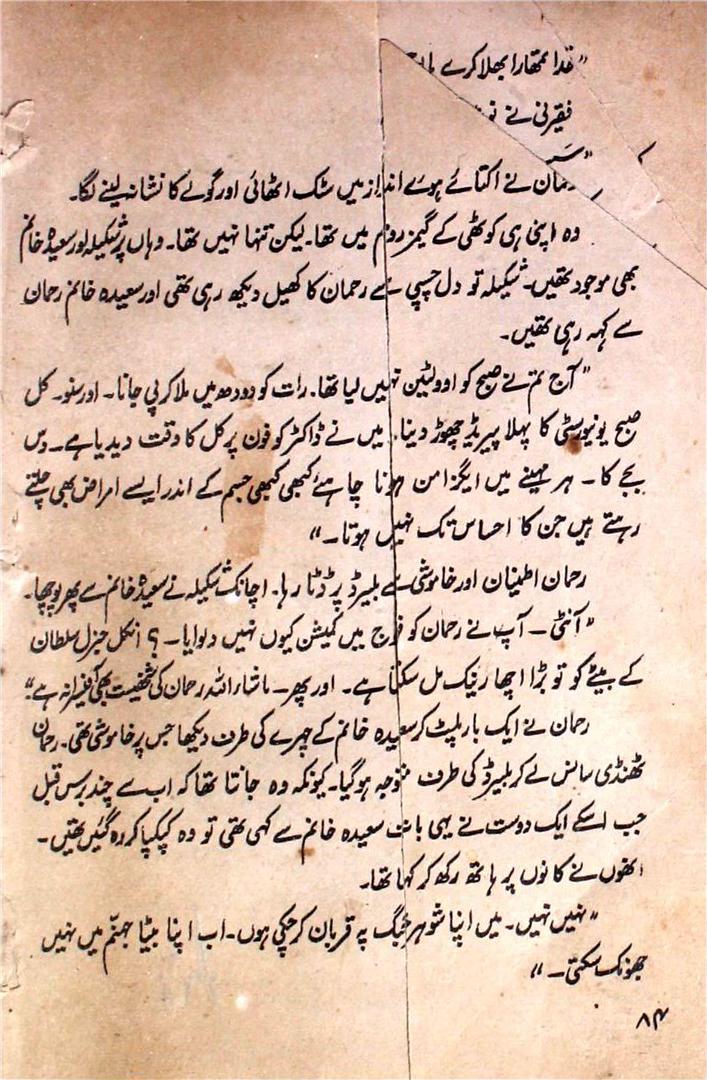 "خدا تمھارا بھلا کرے
فقیرنی نے
رحمان نے اکتائے ہوئے انداز میں سٹک اٹھائی اور گولے کا نشانہ لینے لگا۔
وہ اپنی ہی کوٹھی کے گیمز روم میں تھا۔ لیکن تنہا نہیں تھا۔ وہاں پر شکیلہ اور سعیدہ خانم
بھی موجود تھیں۔ شکیلہ تو دل چسپی سے رحمان کا کھیل دیکھ رہی تھی اور سعیدہ خانم رحمان
سے کہہ رہی تھیں۔
"آج تم نے صبح کو اوولٹین نہیں لیا تھا۔ رات کو دودھ میں ملا کر پی جانا۔ اور سنو۔ کل
صبح یونیورسٹی کا پہلا پیریڈ چھوڑ دینا۔ میں نے ڈاکٹر کو فون پر کل کا وقت دیدیا ہے۔ دس
بجے کا۔ ہر مہینے میں ایگزامن ہونا چاہئے کبھی کبھی جسم کے اندر ایسے امراض بھی چلتے
رہتے ہیں جن کا احساس تک نہیں ہوتا۔"
رحمان اطمینان اور خاموشی سے بلیرڈ پر ڈٹا رہا۔ اچانک شکیلہ نے سعیدہ خانم سے پھر پوچھا۔
"آنٹی۔ آپ نے رحمان کو فوج میں کمیشن کیوں نہیں دلوایا۔؟ انکل جنرل سلطان
کے بیٹے کو تو بڑا اچھا رینک مل سکتا ہے۔ اور پھر۔ ماشاء اللہ رحمان کی شخصیت بھی آفیسرانہ ہے۔"
رحمان نے ایک بار پلٹ کر سعیدہ خانم کے چہرے کی طرف دیکھا جس پر خاموشی تھی۔ رحمان
ٹھنڈی سانس لے کر بلیرڈ کی طرف متوجہ ہو گیا۔ کیونکہ وہ جانتا تھا کہ اب سے چند برس قبل
جب اسکے ایک دوست نے یہی بات سعیدہ خانم سے کہی تھی تو وہ کپکپا کر رہ گئیں تھیں۔
انھوں نے کانوں پر ہاتھ رکھ کر کہا تھا۔
"نہیں نہیں۔ میں اپنا شوہر جنگ پہ قربان کر چکی ہوں۔ اب اپنا بیٹا جہنّم میں نہیں
جھونک سکتی۔"
۸۴